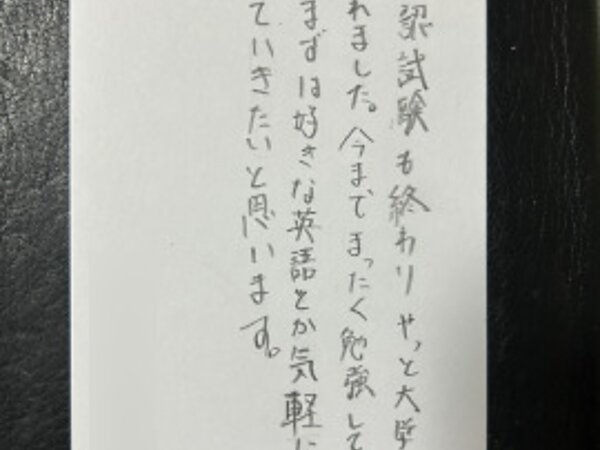 認試験も終わりやっと大学
れました。今までまったく勉強して
まずは好きな英語とか気軽に
ていきたいと思います。